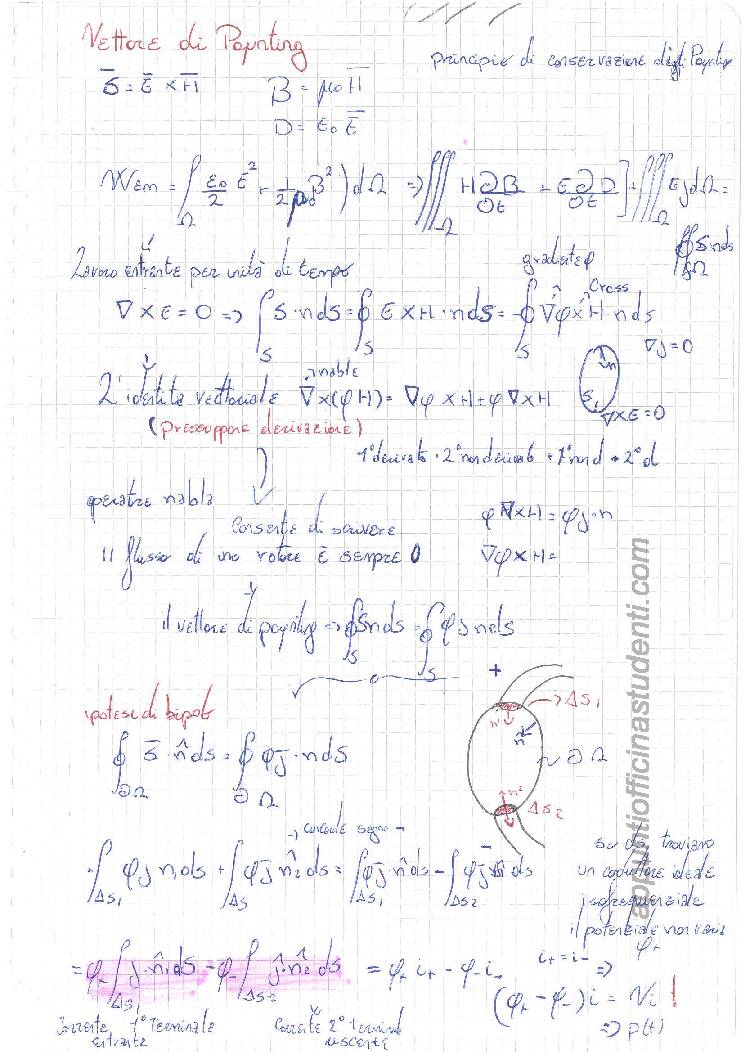 Vettore di Poynting
principio di conservazione di Poynting
S̄ = Ē × H̄
B = μ₀ H̄
D = ε₀ Ē
Wem = ∫_Ω (ε₀/2 E² + 1/2μ₀ B²) dΩ => ∭_Ω H ∂B/∂t + E ∂D/∂t] + ∭ E j dΩ =
∯ S n ds
∂Ω
Lavoro entrante per unità di tempo
gradiente φ
cross
∇ × E = 0 => ∫_S S · n ds = ∮_S E × H · n ds = -∮_S ∇φ × H n ds
∇j = 0
n
S₁
∇×E = 0
nabla
2ª identità vettoriale ∇×(φH) = ∇φ × H + φ ∇×H
(presuppone derivazione)
1° derivato · 2° non derivato + 1° non d · 2° d
operatore nabla
consente di scrivere
φ ∇×H = φ j · n
il flusso di un rotore è sempre 0
∇φ×H =
il vettore di poynting => ∮_S S n ds = ∮_S φ j n ds
+
ipotesi di bipolo
-> ΔS₁
n
n
∂Ω
∮_∂Ω S̄ · n̂ ds = ∮_∂Ω φ j̄ · n ds
n²
ΔS₂
segno
∫_ΔS₁ φ j n₁ ds + ∫_ΔS φ j̄ n̂₂ ds = ∫_ΔS₁ φ j̄ · n̂ ds - ∫_ΔS₂ φ j̄ n̂ ds
su ds, troviamo
un conduttore ideale
il potenziale non varia
φ₊
= φ₊ ∫_ΔS₁ j · n̂₁ ds - φ₋ ∫_ΔS₂ j · n̂₂ ds = φ₊ i₊ - φ₋ i₋
i₊ = i₋ =>
(φ₊ - φ₋) i = Vi !
=> p(t)
Corrente 1° Terminale
entrante
Corrente 2° Terminale
uscente
appuntiofficinastudenti.com